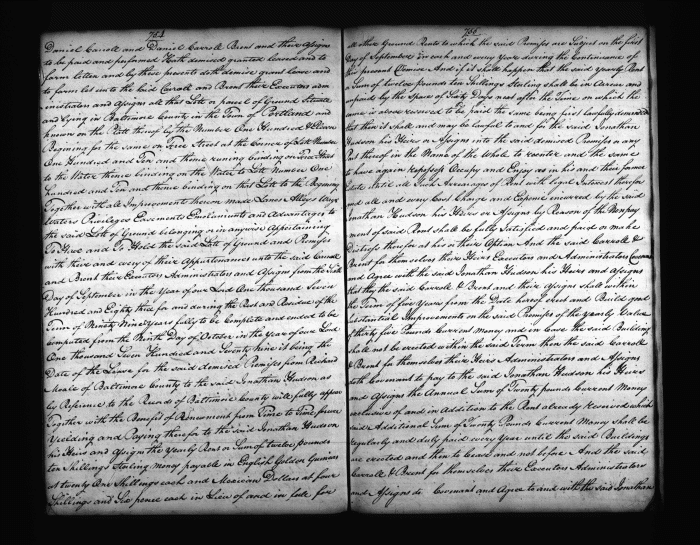 754
Daniel Carroll and Daniel Carroll Brent and their Assigns
to be paid and performed Hath demised granted leased and to
farm letten and by these presents doth demise grant lease and
to farm let unto the said Carroll and Brent their Executors adm
inistrators and Assigns all that Lott or parcel of Ground Situate
and Lying in Baltimore County in the Town of Portland and
known on the Platt thereof by the Number One Hundred & Eleven
Begining for the same on Free Street at the Corner of Lott Number
One Hundred and Ten and thence runing binding on Free Street
to the Water thence binding on the Water to Lott Number One
hundred and Ten and thence binding on that Lott to the Begining
Together with all Improvements thereon made Lanes Alleys Ways
Waters Priviledges Easements Emoluments and Advantages to
the said Lott of Ground belonging or in anywise Appertaining
To Have and To Hold the said Lott of Ground and Premises
with their and every of their Appurtenances unto the said Carroll
and Brent their Executors Administrators and Assigns from the
Day of September in the Year of our Lord One thousand Seven
Hundred and Eighty three for and during the Rest and Residue of the
Term of Ninety Nine Years fully to be Complete and ended to be
Computed from the Ninth Day of October in the Year of our Lord
One thousand Seven Hundred and Seventy Nine it being the
Date of the Lease for the said demised Premises from Richard
Moale of Baltimore County to the said Jonathan Hudson as
by Reference to the Records of Baltimore County will fully appear
Together with the Benefit of Renewments from Time to Time forever
Yeelding and Paying therefor to the said Jonathan Hudson
his Heirs and Assigns the Yearly Rent or Sum of twelve pounds
ten Shillings Sterling Money payable in English Golden Guineas
at twenty One Shillings each and Mexican Dollars at four
Shillings and Six pence each in Lieu of and in full for
755
all other Ground Rents to which the said Premises are Subject on the first
Day of September in each and every Year during the Continuance of
this present Demise And if it Shall happen that the said Yearly Rent
Sum of twelve pounds ten Shillings Sterling shall be in Arrear and
unpaid by the Space of Sixty Days next after the Time on which the
same is above reserved to be paid the Same being first Lawfully demanded
that then it shall and may be Lawful to and for the said Jonathan
Hudson his Heirs or Assigns into the said demised Premises or any
Part thereof in the Name of the Whole to reenter and the same
to have again repossess Occupy and Enjoy as in his and their former
Estate until all Such Arrearages of Rent with Legal Interest therefor
and all and every Cost Charge and Expence incurred by the said
Jonathan Hudson his Heirs or Assigns by Reason of the Nonpay
ment of said Rent shall be fully Satisfied and paid or make
Distress therefor at his or their Option And the said Carroll &
Brent for themselves their Heirs Executors and Administrators Covenant
and Agree with the said Jonathan Hudson his Heirs and Assigns
that they the said Carroll & Brent and their Assigns shall within
the Term of five Years from the Date hereof erect and Build good
Substantial Improvements on the said Premises of the yearly Value
of thirty five pounds Current Money and in Case the said Building
shall not be erected within the said Term then the said Carroll
& Brent for themselves their Heirs Administrators and Assigns
doth Covenant to pay to the said Jonathan Hudson his Heirs
and Assigns the Annual Sum of Twenty pounds Current Money
exclusive of and in Addition to the Rent already reserved which
said Additional Sum of Twenty Pounds Current Money shall be
regularly and duly paid every Year until the said Buildings
are erected and then to Cease and not before And the said
Carroll & Brent for themselves their Executors Administrators
and Assigns do Covenant and Agree to and with the said Jonathan